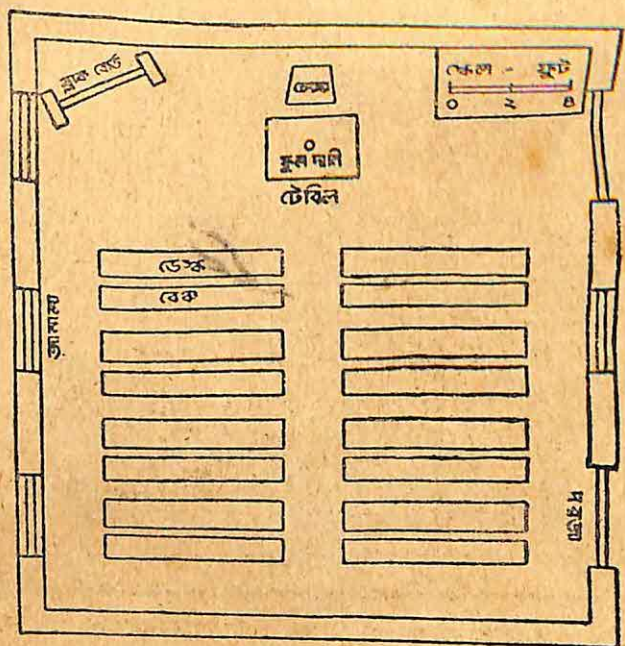 ব্লাক বোর্ড
চেয়ার
স্কেল - ফুট
০ ২ ৪
ফুল দানি
টেবিল
ডেস্ক
বেঞ্চ
জানালা
দরজা